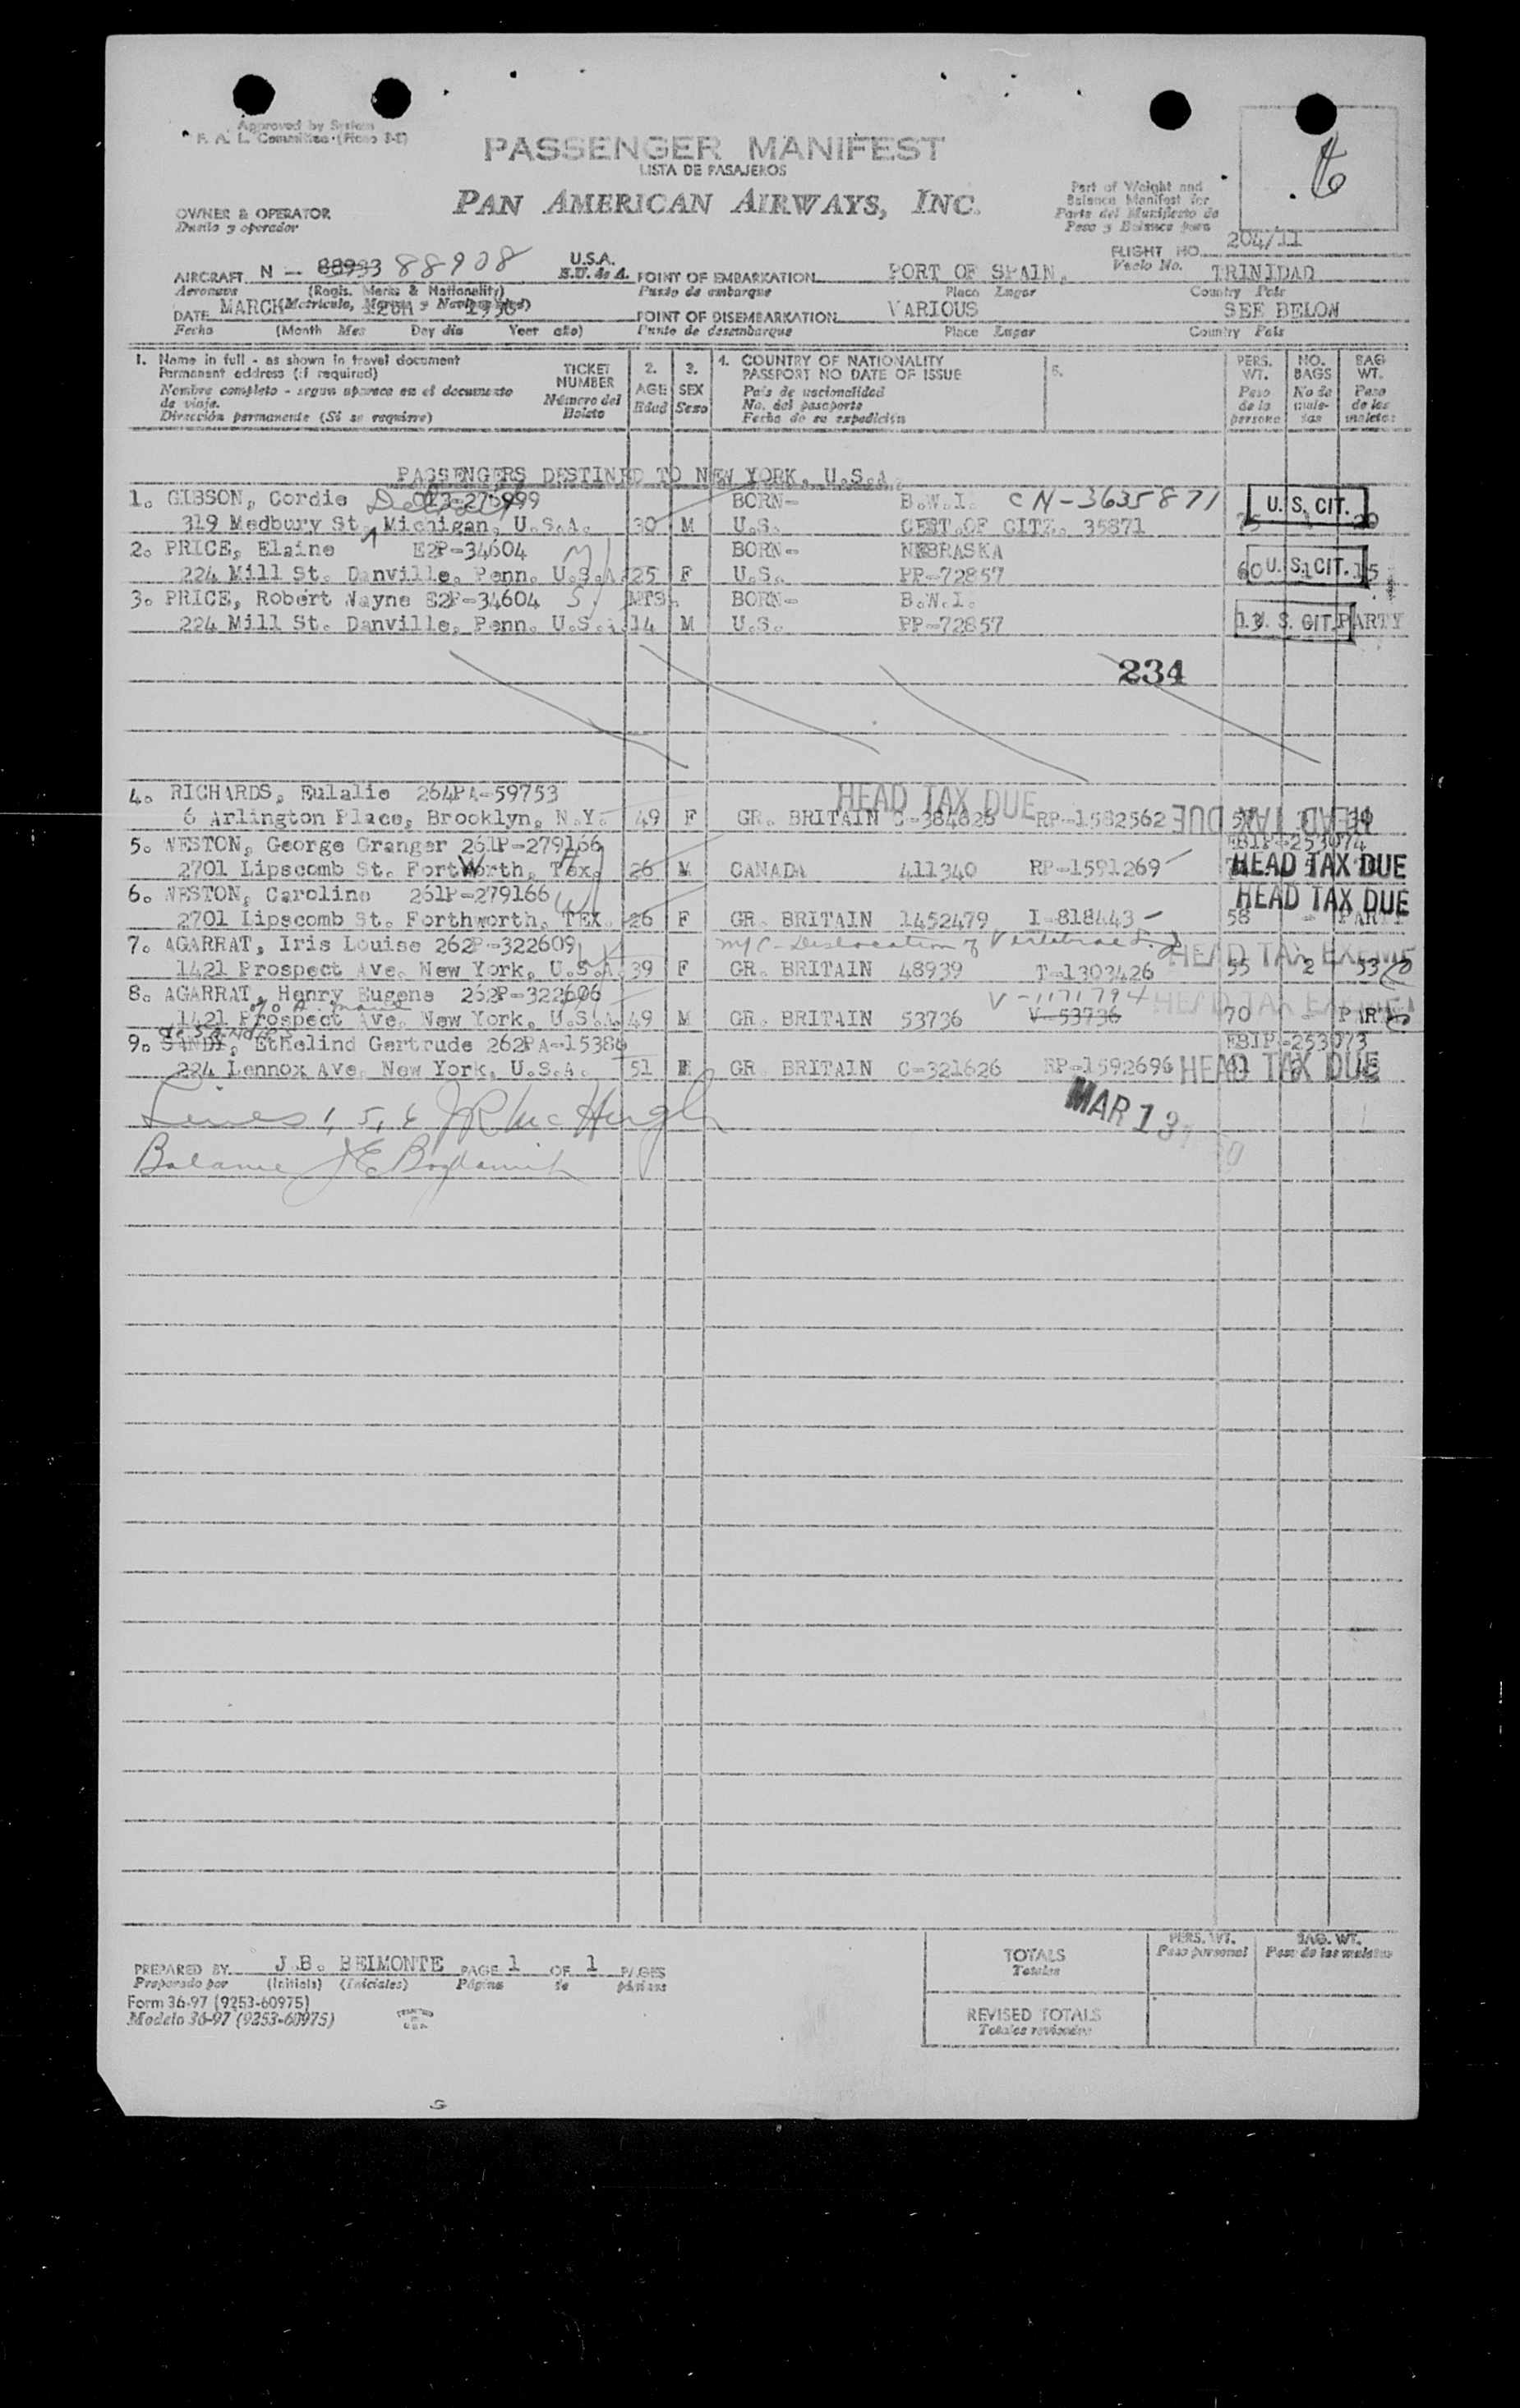 Approved by System
F. A. L. Committee (Fieso 3-2)
PASSENGER MANIFEST
LISTA DE PASAJEROS
PAN AMERICAN AIRWAYS, INC.
Part of Weight and
Balance Manifest for
Parte del Manifiesto de
Peso y Balance para
OWNER & OPERATOR
Dueño y operador
FLIGHT NO. 204/11
Vuelo No.
AIRCRAFT N - 88933 88908 U.S.A. POINT OF EMBARKATION PORT OF SPAIN, TRINIDAD
Aeronave (Regis. Marks & Nationality) E.U. de A. Punto de embarque Place Lugar Country País
(Matrícula, Marcas y Nacionalidad)
DATE MARCH 12th 1950 POINT OF DISEMBARKATION VARIOUS SEE BELOW
Fecha (Month Mes Day día Year año) Punto de desembarque Place Lugar Country País
1. Name in full - as shown in travel document
Permanent address (if required)
Nombre completo - segun aparece en el documento
de viaje.
Dirección permanente (Si se requiere)
TICKET
NUMBER
Número del
Boleto
2.
AGE
Edad
3.
SEX
Sexo
4. COUNTRY OF NATIONALITY
PASSPORT NO DATE OF ISSUE
País de nacionalidad
No. del pasaporte
Fecha de su expedición
5.
PERS.
WT.
Peso
de la
persona
NO.
BAGS
No de
male-
tas
BAG
WT.
Peso
de las
maletas
PASSENGERS DESTINED TO NEW YORK, U.S.A.
1. GIBSON, Cordie BORN- B.W.I. CN-3635871
319 Medbury St. Michigan, U.S.A. 30 M U.S. CERT.OF CITZ. 35871 U. S. CIT.
2. PRICE, Elaine E2P-34604 M BORN- NEBRASKA
224 Mill St. Danville, Penn. U.S.A. 25 F U.S. PP-72857 60 U. S. CIT. 15
3. PRICE, Robert Wayne E2P-34604 S MTS. BORN- B.W.I.
224 Mill St. Danville, Penn. U.S.A. 14 M U.S. PP-72857 U. S. CIT. PARTY
234
4. RICHARDS, Eulalie 264PA-59753 HEAD TAX DUE
6 Arlington Place, Brooklyn, N.Y. 49 F GR. BRITAIN RP-1582562 HEAD TAX DUE
5. WESTON, George Granger 261P-279166 EBIP-253074
2701 Lipscomb St. Fort Worth, Tex. 26 M CANADA 411340 RP-1591269 HEAD TAX DUE
6. WESTON, Caroline 261P-279166 HEAD TAX DUE
2701 Lipscomb St. Forthworth, TEX. 26 F GR. BRITAIN 1452479 I-818443 58 - PARTY
7. AGARRAT, Iris Louise 262P-322609 M/C - Dislocation of Vertebrae HEAD TAX EXEMPT
1421 Prospect Ave. New York, U.S.A. 39 F GR. BRITAIN 48939 T-1303426 55 2 53
8. AGARRAT, Henry Eugene 262P-322606 V-1171794 HEAD TAX EXEMPT
1421 Prospect Ave. New York, U.S.A. 49 M GR. BRITAIN 53736 V-53736 70 - PARTY
9. SANDY, Ethelind Gertrude 262PA-15386 EBIP-253073
224 Lennox Ave. New York, U.S.A. 51 GR. BRITAIN C-321626 RP-1592696 HEAD TAX DUE
MAR 13 1950
Lines 1, 5, 6
Balance
PREPARED BY J.B. BELMONTE PAGE 1 OF 1 PAGES
Preparado por (Initials) (Iniciales) Página de páginas
Form 36-97 (9253-60975)
Modelo 36-97 (9253-60975)
PRINTED
IN
U.S.A.
PERS. WT.
Peso personal
BAG. WT.
Peso de las maletas
TOTALS
Totales
REVISED TOTALS
Totales revisados